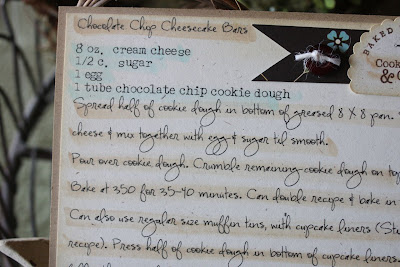 Chocolate Chip Cheesecake Bars
BAKED
Cook
& G
8 oz. cream cheese
1/2 c. sugar
1 egg
1 tube chocolate chip cookie dough
Spread half of cookie dough in bottom of greased 8 X 8 pan.
cheese & mix together with egg & sugar til smooth.
Pour over cookie dough. Crumble remaining cookie dough on top
Bake at 350 for 35-40 minutes. Can double recipe & bake in
Can also use regular size muffin tins, with cupcake liners (Ste
recipe). Press half of cookie dough in bottom of cupcake liners.